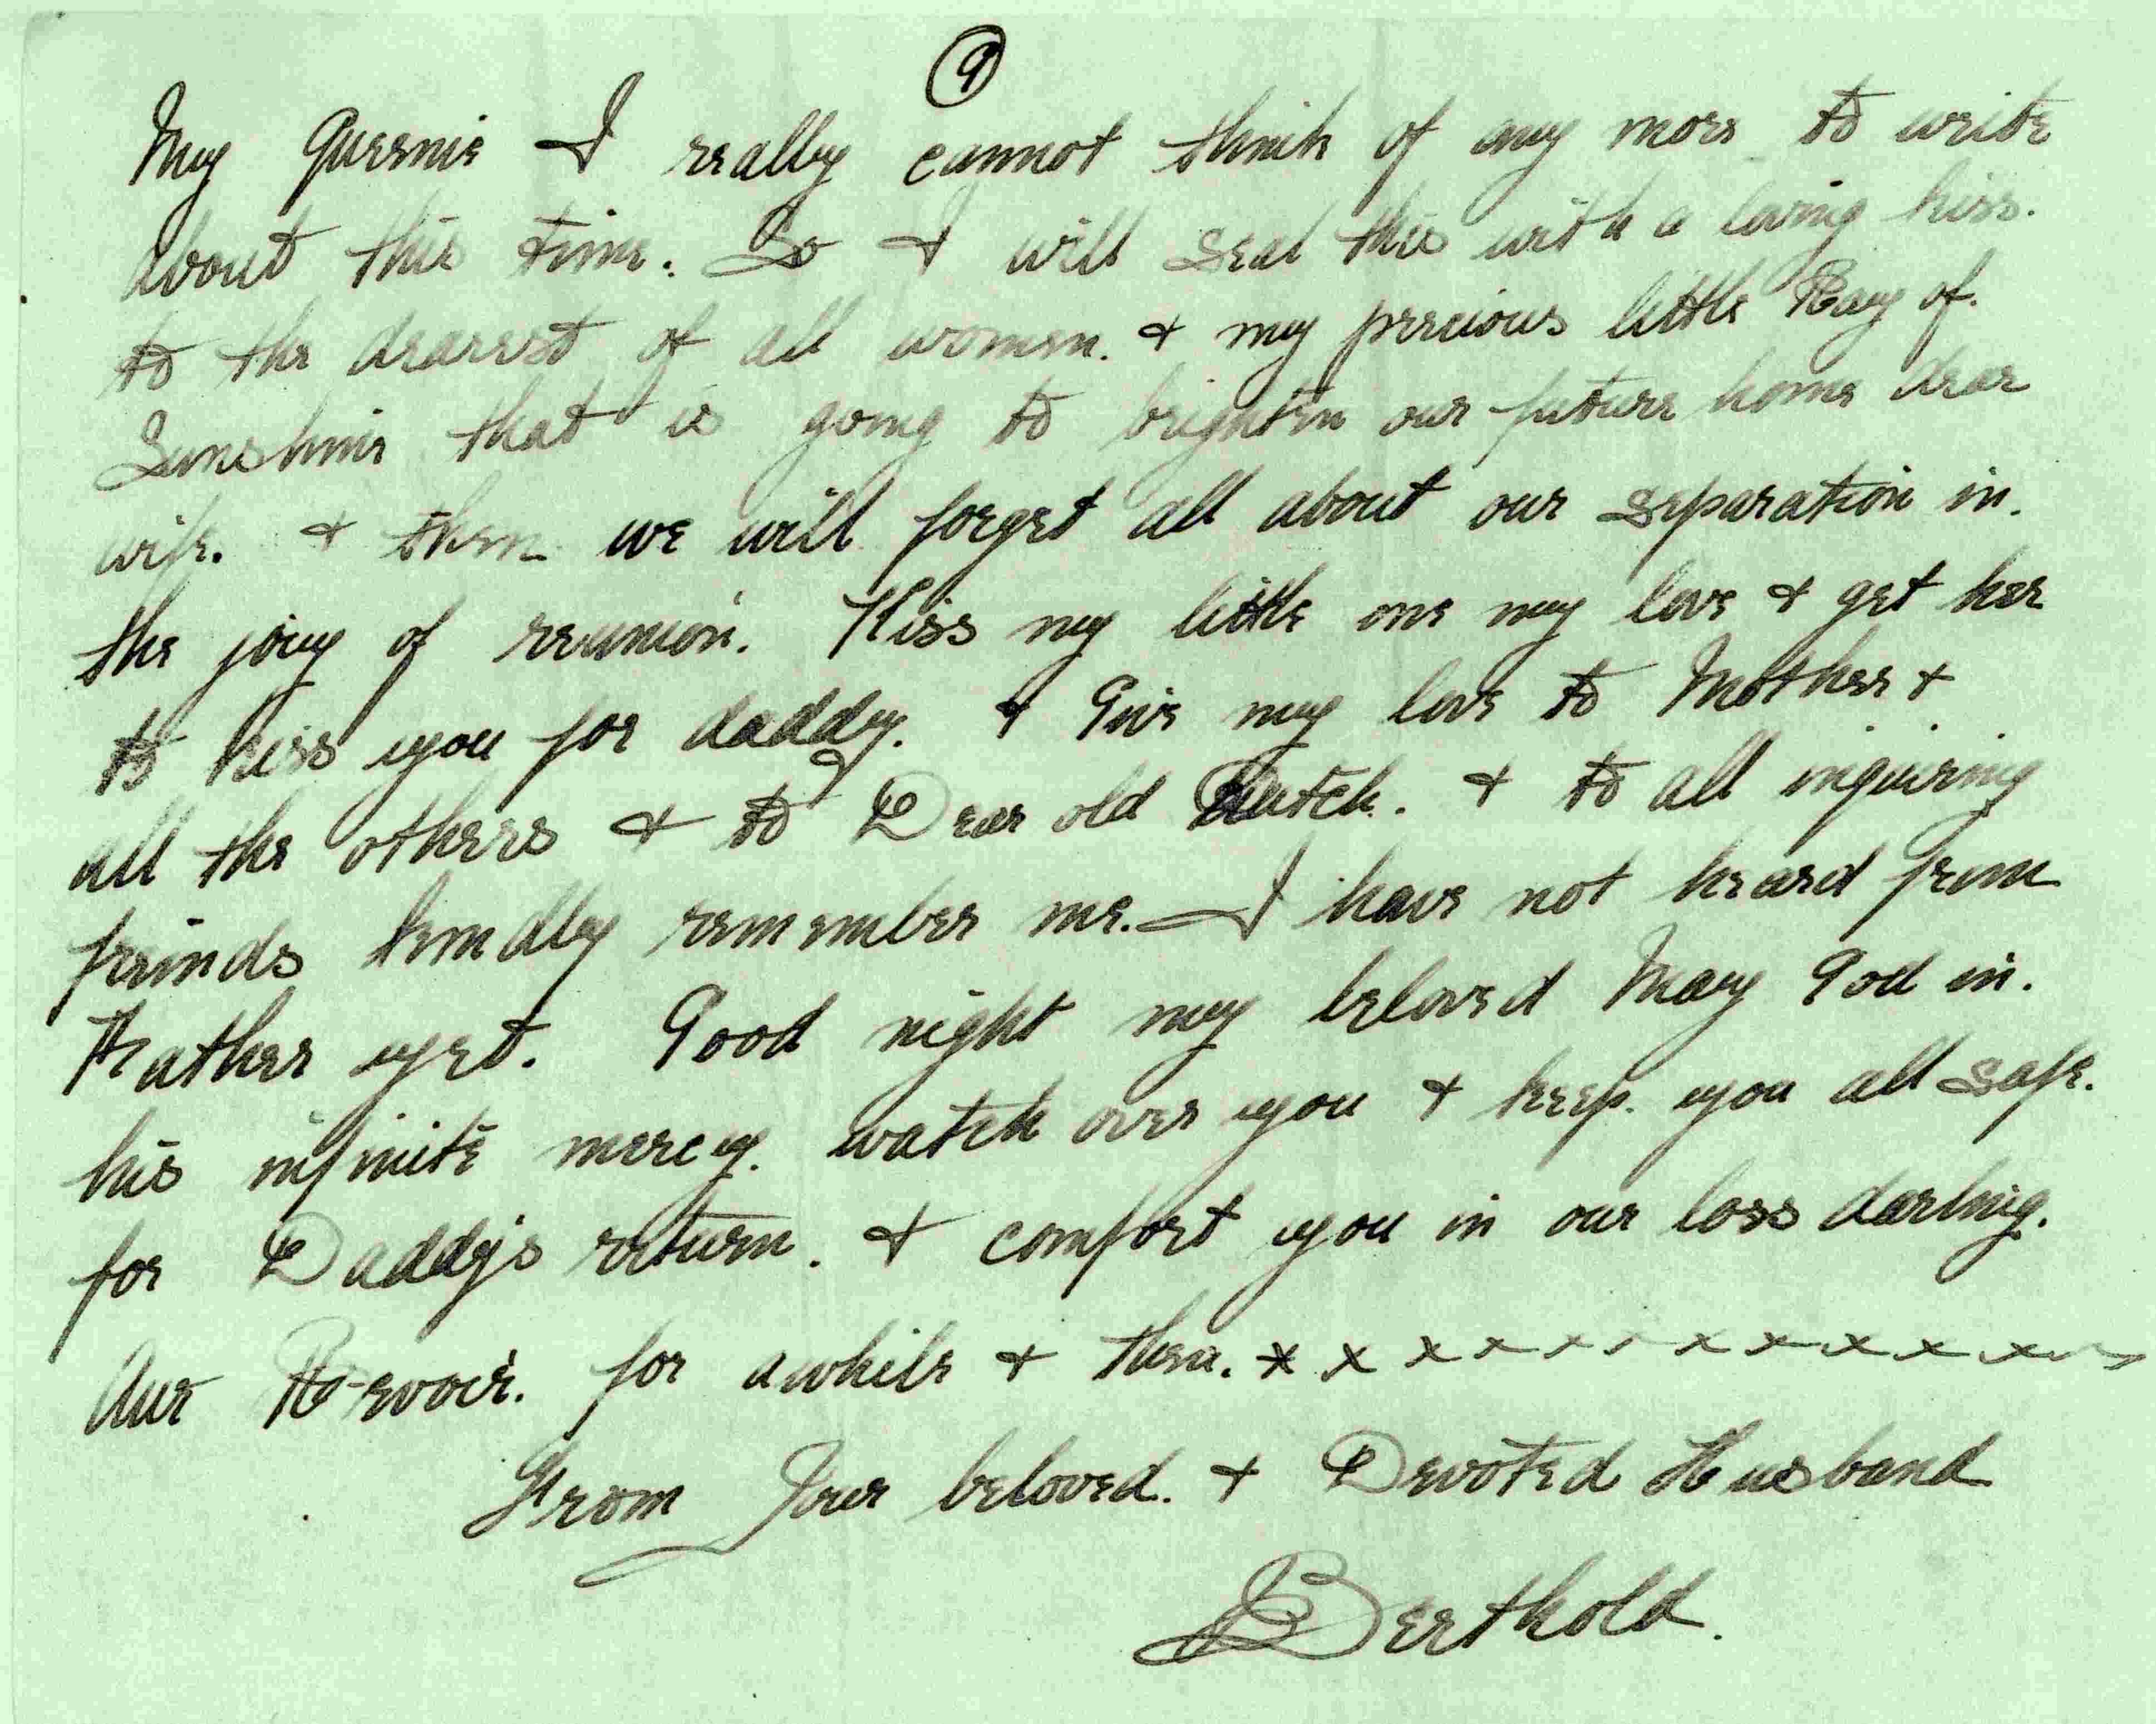 9
My Queenie I really cannot think of any more to write
about this time. So I will seal this with a loving kiss.
to the dearest of all women. + my precious little Ray of.
Sunshine that is going to brighten our future home dear
wife. + then we will forget all about our separation in.
the joy of reunion. Kiss my little one my love + get her
to kiss you for daddy. + Give my love to Mother +
all the others + to Dear old Dutch. + to all inquiring
freinds kindly remember me. I have not heard from
Father yet. Good night my beloved May God in.
his infinite mercy. watch over you + keep. you all safe.
for Daddy's return. + comfort you in our loss darling.
Aur Re-voir. for awhile + then. x x x x x x x x x x x x x
From Your beloved. + Devoted Husband
Berthold.